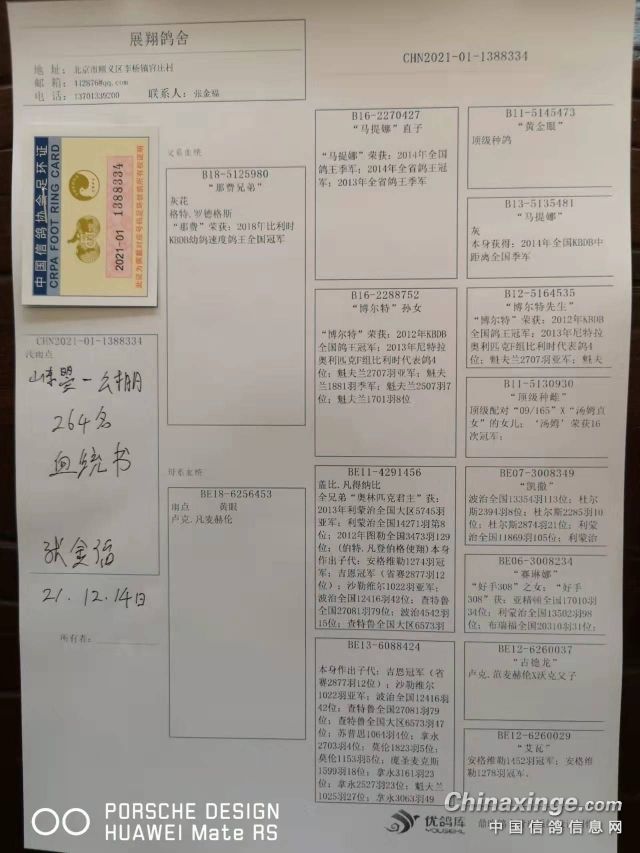 展翔鸽舍
地 址：北京市顺义区李桥镇官庄村
邮 箱：412876@qq.com
电 话：13701339200 联系人：张金福
CHN2021-01-1388334
中国信鸽协会足环证
CRPA FOOT RING CARD
2021-01 1388334
CHN2021-01-1388334
浅雨点
264名
血统书
21.12.14日
所有者：
父系血统
B18-5125980
“那费兄弟”
灰花
格特.罗德格斯
“那费”荣获：2018年比利时
KBDB幼鸽速度鸽王全国冠军
母系血统
BE18-6256453
雨点 黄眼
卢克.凡麦赫伦
B16-2270427
“马提娜”直子
“马提娜”荣获：2014年全国
鸽王季军；2014年全省鸽王冠
军；2013年全省鸽王季军
B16-2288752
“博尔特”孙女
“博尔特”荣获：2012年KBDB
全国鸽王冠军；2013年尼特拉
奥利匹克F组比利时代表鸽4
位；魁夫兰2707羽亚军；魁夫兰
1881羽季军；魁夫兰2507羽7
位；魁夫兰1701羽8位
BE11-4291456
盖比.凡得纳比
全兄弟“奥林匹克君主”获：
2013年利蒙治全国大区5745羽
亚军；利蒙治全国14271羽第8
位；2012年图勒全国3473羽129
位；(伯特.凡登伯格使翔)本身
作出子代：安格维勒1274羽冠
军；吉恩冠军（省赛2877羽12
位）；沙勒维尔1022羽亚军；
波治全国12416羽42位；查特鲁
全国27081羽79位；波治4542羽
15位；查特鲁全国大区6573羽
BE13-6088424
本身作出子代：吉恩冠军（省
赛2877羽12位）；沙勒维尔
1022羽亚军；波治全国12416羽
42位；查特鲁全国27081羽79
位；查特鲁全国大区6573羽47
位；苏普思1064羽4位；拿永
2703羽4位；莫伦1823羽5位；
莫伦1153羽5位；庞圣麦克斯
1599羽18位；拿永3161羽23
位；拿永2527羽23位；魁夫兰
1025羽27位；拿永3063羽49
B11-5145473
“黄金眼”
顶级种鸽
B13-5135481
“马提娜”
灰
本身获得：2014年全国KBDB中
距离全国季军
B12-5164535
“博尔特先生”
“博尔特”荣获：2012年KBDB
全国鸽王冠军；2013年尼特拉
奥利匹克F组比利时代表鸽4
位；魁夫兰2707羽亚军；魁夫
B11-5130930
“顶级种雌”
顶级配对“09/165”X“汤姆直
女”的女儿；‘汤姆’荣获16
次冠军；
BE07-3008349
“凯撒”
波治全国13354羽113位；杜尔
斯2394羽8位；杜尔斯2285羽10
位；杜尔斯2874羽21位；利蒙
治全国11869羽105位；利蒙治
BE06-3008234
“赛琳娜”
“好手308”之女；“好手
308”获：亚精顿全国17010羽
34位；利蒙治全国13502羽98
位；布瑞福全国20310羽31位；
BE12-6260037
“古德龙”
卢克.范麦赫伦X沃克父子
BE12-6260029
“艾瓦”
安格维勒1452羽冠军；安格维
勒1278羽冠军.
优鸽库
YOUGEHL
Chinaxinge.com
中国信鸽信息网
PORSCHE DESIGN
HUAWEI Mate RS